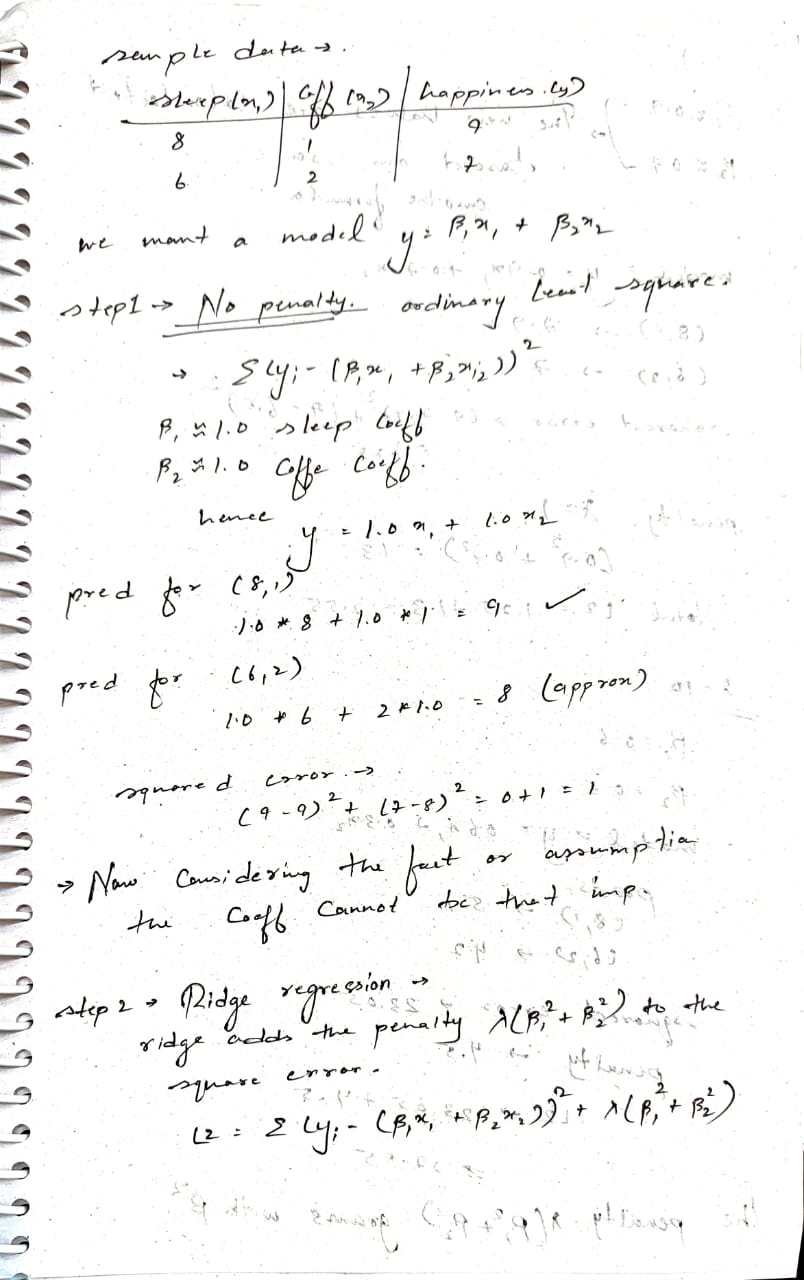 sample data →.
sleep (x₁) | Coff (x₂) | happiness (y)
8 | 1 | 9
6 | 2 | 7
we want a model y = β₁x₁ + β₂x₂
step1 → No penalty. ordinary least square.
→ Σ(yᵢ - (β₁x₁ + β₂xᵢ₂))²
β₁ ≈ 1.0 sleep Coeff
β₂ ≈ 1.0 Coffe Coeff.
hence
y = 1.0 x₁ + 1.0 x₂
pred for (8,1)
1.0 * 8 + 1.0 * 1 = 9 ✓
pred for (6,2)
1.0 * 6 + 2 * 1.0 = 8 (approx)
squared error. →
(9-9)² + (7-8)² = 0+1 = 1
→ Now Considering the fact or assumptia
the Coeff Cannot be that imp.
step 2 → Ridge regression →
ridge adds the penalty λ(β₁² + β₂²) to the
square error.
L2 = Σ(yᵢ - (β₁x₁ + β₂x₂))² + λ(β₁² + β₂²)